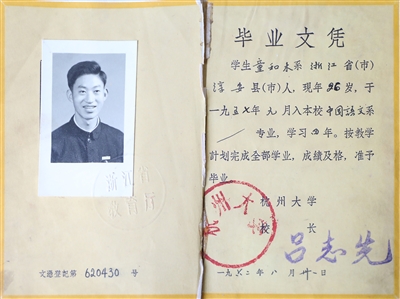 毕业文凭
学生童和木系浙江省(市)
淳安县(市)人,现年26岁,于
一九五七年九月入本校中国語文系
专业,学习四年。按教学
計划完成全部学业,成绩及格,准予
毕业
杭州大学
校长
吕志先
一九六二年八月廿一日
浙江省
教育厅
杭州大学
文憑登記第 620430 号